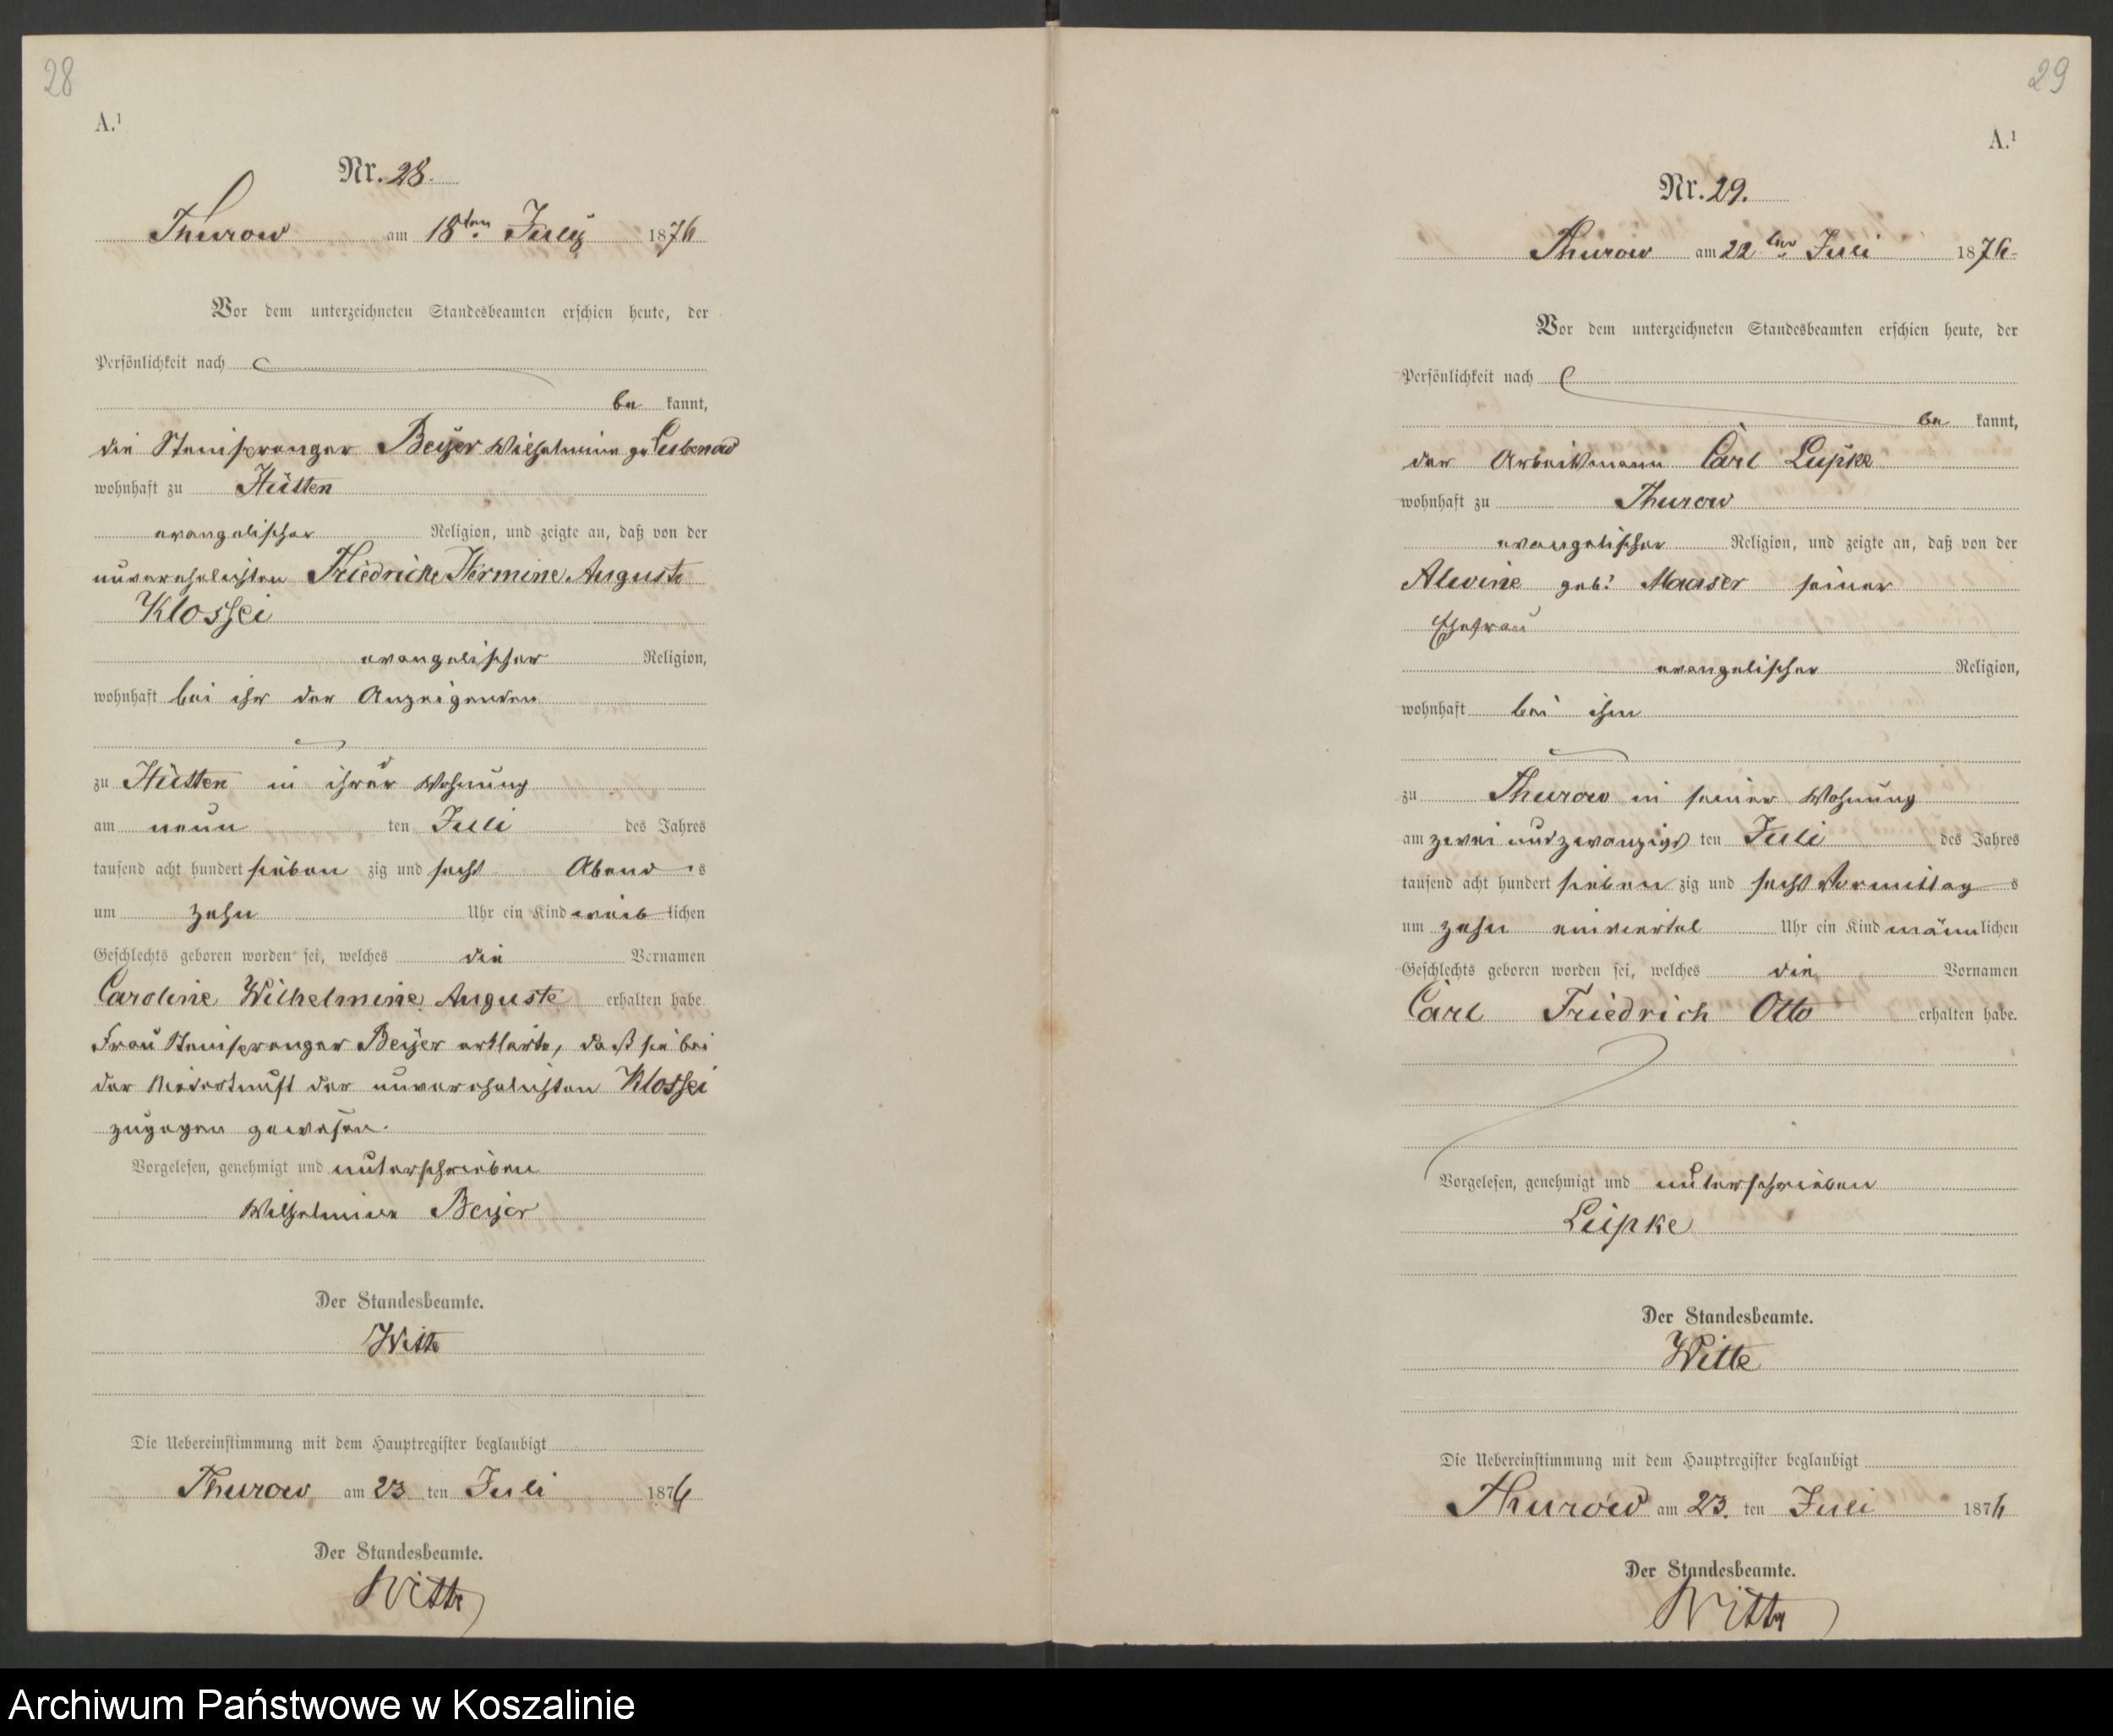 28
A.¹
Nr. 28.
Thurow am 18ten July 1876
Vor dem unterzeichneten Standesbeamten erschien heute, der
Persönlichkeit nach
be kannt,
die Beyer Wilhelmine
wohnhaft zu Hütten
evangelischer Religion, und zeigte an, daß von der
unverehelichten Friedricke Hermine Auguste
Klossei
evangelischer Religion,
wohnhaft bei ihr der Anzeigenden
zu Hütten in ihrer Wohnung
am neun ten Juli des Jahres
tausend acht hundert sieben zig und sechs Abend s
um zehn Uhr ein Kind weib lichen
Geschlechts geboren worden sei, welches die Vornamen
Caroline Wilhelmine Auguste erhalten habe
Frau Beyer erklärte, daß sie bei
der Niederkunft der unverehelichten Klossei
zugegen gewesen.
Vorgelesen, genehmigt und unterschrieben
Wilhelmine Beyer
Der Standesbeamte.
Witte
Die Uebereinstimmung mit dem Hauptregister beglaubigt
Thurow am 23 ten Juli 1876
Der Standesbeamte.
Witte
29
A.¹
Nr. 29.
Thurow am 22ten Juli 1876
Vor dem unterzeichneten Standesbeamten erschien heute, der
Persönlichkeit nach
be kannt,
der Arbeitsmann Carl Lüpke
wohnhaft zu Thurow
evangelischer Religion, und zeigte an, daß von der
Alwine geb: Maaser seiner
Ehefrau
evangelischer Religion,
wohnhaft bei ihm
zu Thurow in seiner Wohnung
am zwei und zwanzigs ten Juli des Jahres
tausend acht hundert sieben zig und sechs Vormittag s
um zehn einviertel Uhr ein Kind männ lichen
Geschlechts geboren worden sei, welches die Vornamen
Carl Friedrich Otto erhalten habe.
Vorgelesen, genehmigt und unterschrieben
Lüpke
Der Standesbeamte.
Witte
Die Uebereinstimmung mit dem Hauptregister beglaubigt
Thurow am 23. ten Juli 1876
Der Standesbeamte.
Witte
Archiwum Państwowe w Koszalinie